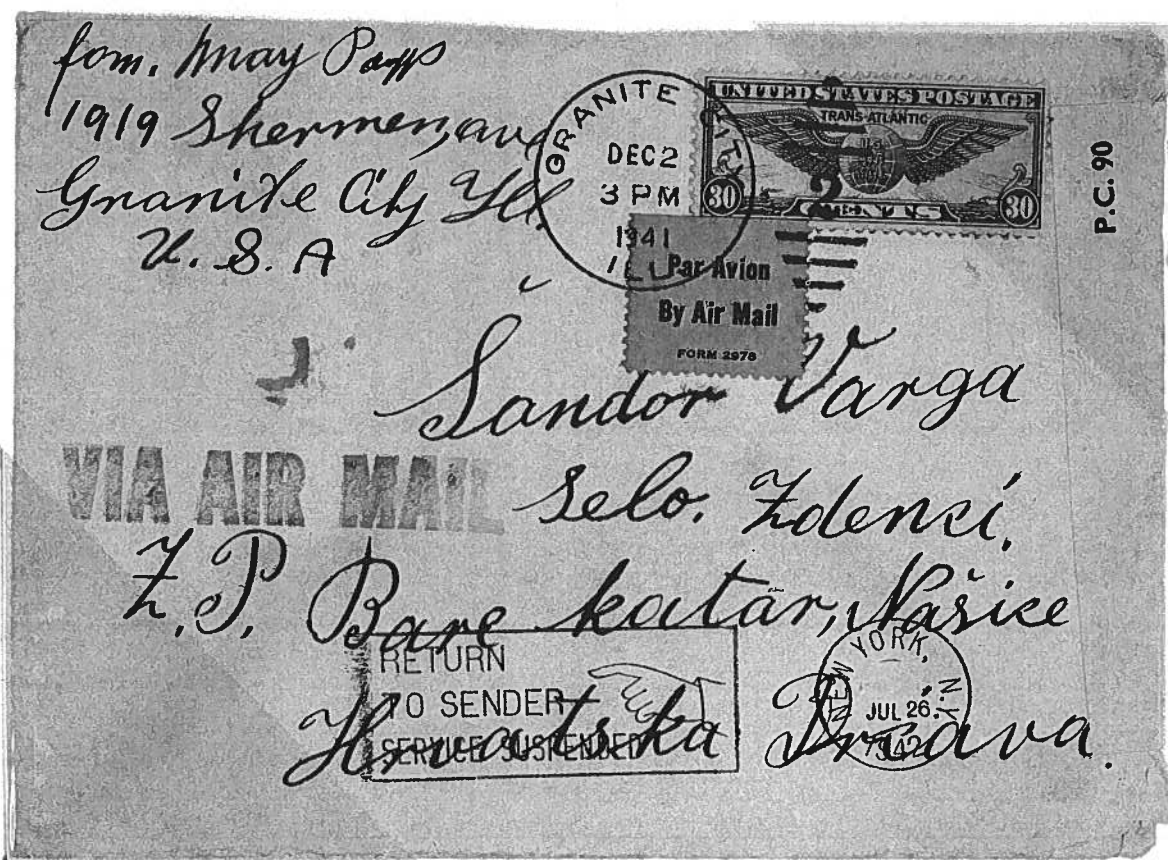 fom. Mary Papp
1919 Shermen, ave
Granite City Ill.
U. S. A
GRANITE CITY
DEC 2
3 PM
1941
ILL.
UNITED STATES POSTAGE
TRANS-ATLANTIC
U.S.
AIR
MAIL
30 CENTS 30
P.C. 90
Par Avion
By Air Mail
FORM 2978
Šandor Varga
VIA AIR MAIL
selo. Zdenci,
Z.P. Bare katar, Našice
Hrvatska Država.
RETURN
TO SENDER
SERVICE SUSPENDED
NEW YORK, N.Y.
JUL 26
1942